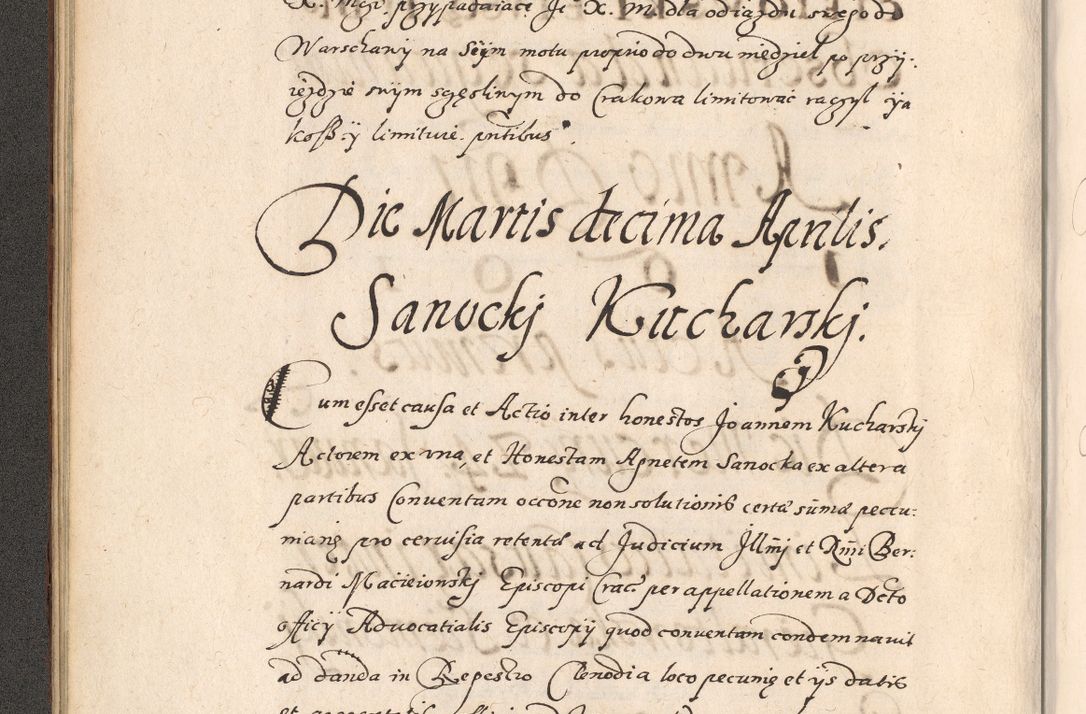 X. Msz. przypadaiące Je X. M. dla odiazdu swego do
Warschawy na Seÿm motu proprio do dwu niedziel po przÿ:
iezdzie swÿm sczęsliwym do Crakowa limitować raczÿl ÿa
kosz ÿ limituie. pntibus.
Die Martis decima Aprilis.
Sanockj Kucharskj.
Cum esset causa et Actio inter honestos Joannem Kucharskj
Actorem ex una, et Honestam Agnetem Sanocka ex altera
partibus Conventam occone non solutionis certæ sumæ pecu:
niarię pro cervisia retentæ ad Judicium Illmj et Rmi Ber:
nardi Macieiowskj Episcopi Crac. per appellationem a Dcto
officÿ Advocatialis Episcopÿ quod conventam condemnavit
ad danda in Regestro Clenodia loco pecunię et ÿs datis